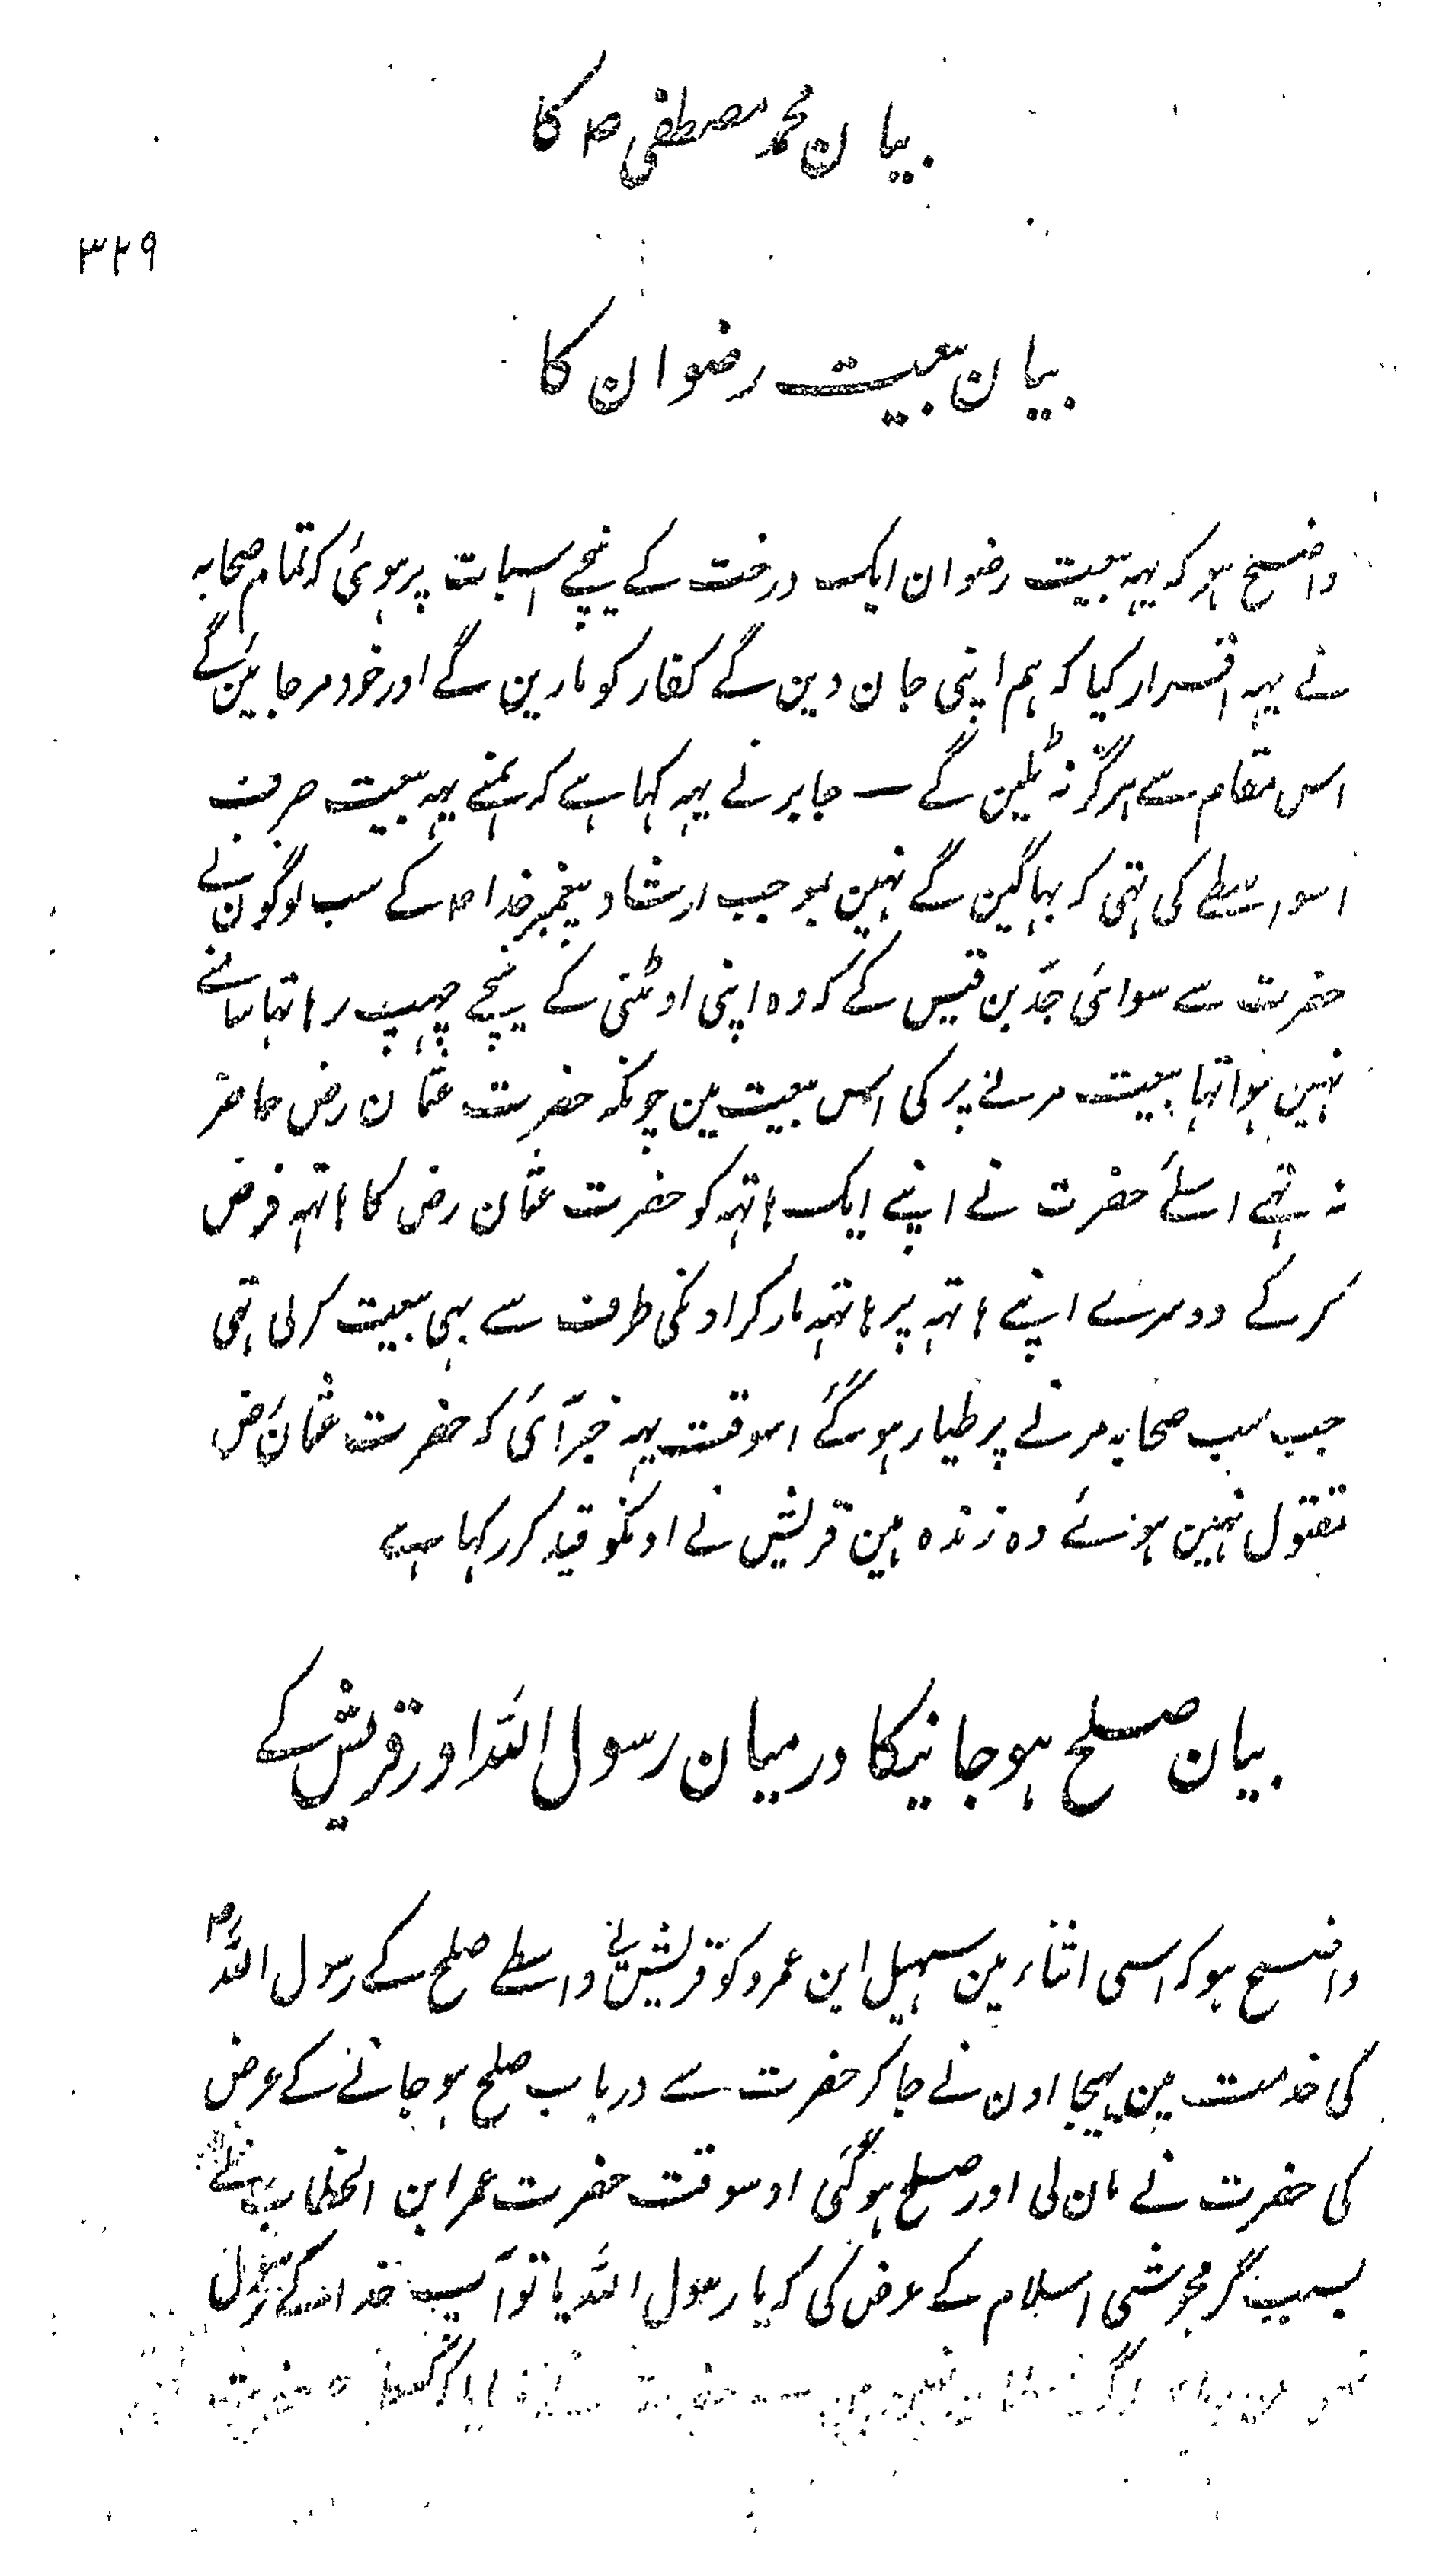 بیان محمد مصطفی ص کا
۳۲۹
بیان بیعت رضوان کا
واضح ہو کہ یہہ بیعت رضوان ایک درخت کے نیچے اسبات پر ہوئی کہ تمام صحابہ
نے یہہ اقرار کیا کہ ہم اپنی جان دین گے کفار کو مارین گے اور خود مرجائین گے
اس مقام سے ہرگز نہ ٹلین گے — جابر نے یہہ کہا ہے کہ ہمنے یہہ بیعت صرف
اسواسطے کی تہی کہ بہاگین گے نہین بموجب ارشاد پیغمبر خدا ص کے سب لوگون نے
حضرت سے سوائی جد بن قیس کے کہ وہ اپنی اوٹنی کے نیچے چہپ رہا تہا سامنے
نہین ہوا تہا بیعت مرنے پر کی اس بیعت مین چونکہ حضرت عثمان رض حاضر
نہ تہے اسلئے حضرت نے اپنے ایک ہاتہہ کو حضرت عثمان رض کا ہاتہہ فرض
کرکے دوسرے اپنے ہاتہہ پر ہاتہہ مارکر اونکی طرف سے بہی بیعت کرلی تہی
جب سب صحابہ مرنے پر طیار ہوگئے اسوقت یہہ خبر آئی کہ حضرت عثمان رض
مقتول نہین ہوئے وہ زندہ ہین قریش نے اونکو قید کر رکہا ہے
بیان صلح ہو جانیکا درمیان رسول اللہ اور قریش کے
واضح ہو کہ اسی اثناء مین سہیل ابن عمرو کو قریش نے واسطے صلح کے رسول اللہ ص
کی خدمت مین بہیجا اون نے جاکر حضرت سے درباب صلح ہو جانے کے عرض
کی حضرت نے مان لی اور صلح ہوگئی اوسوقت حضرت عمر ابن الخطاب نے
بسبب گرمجوشی اسلام کے عرض کی کہ یا رسول اللہ یا تو آپ خدا کے رسول